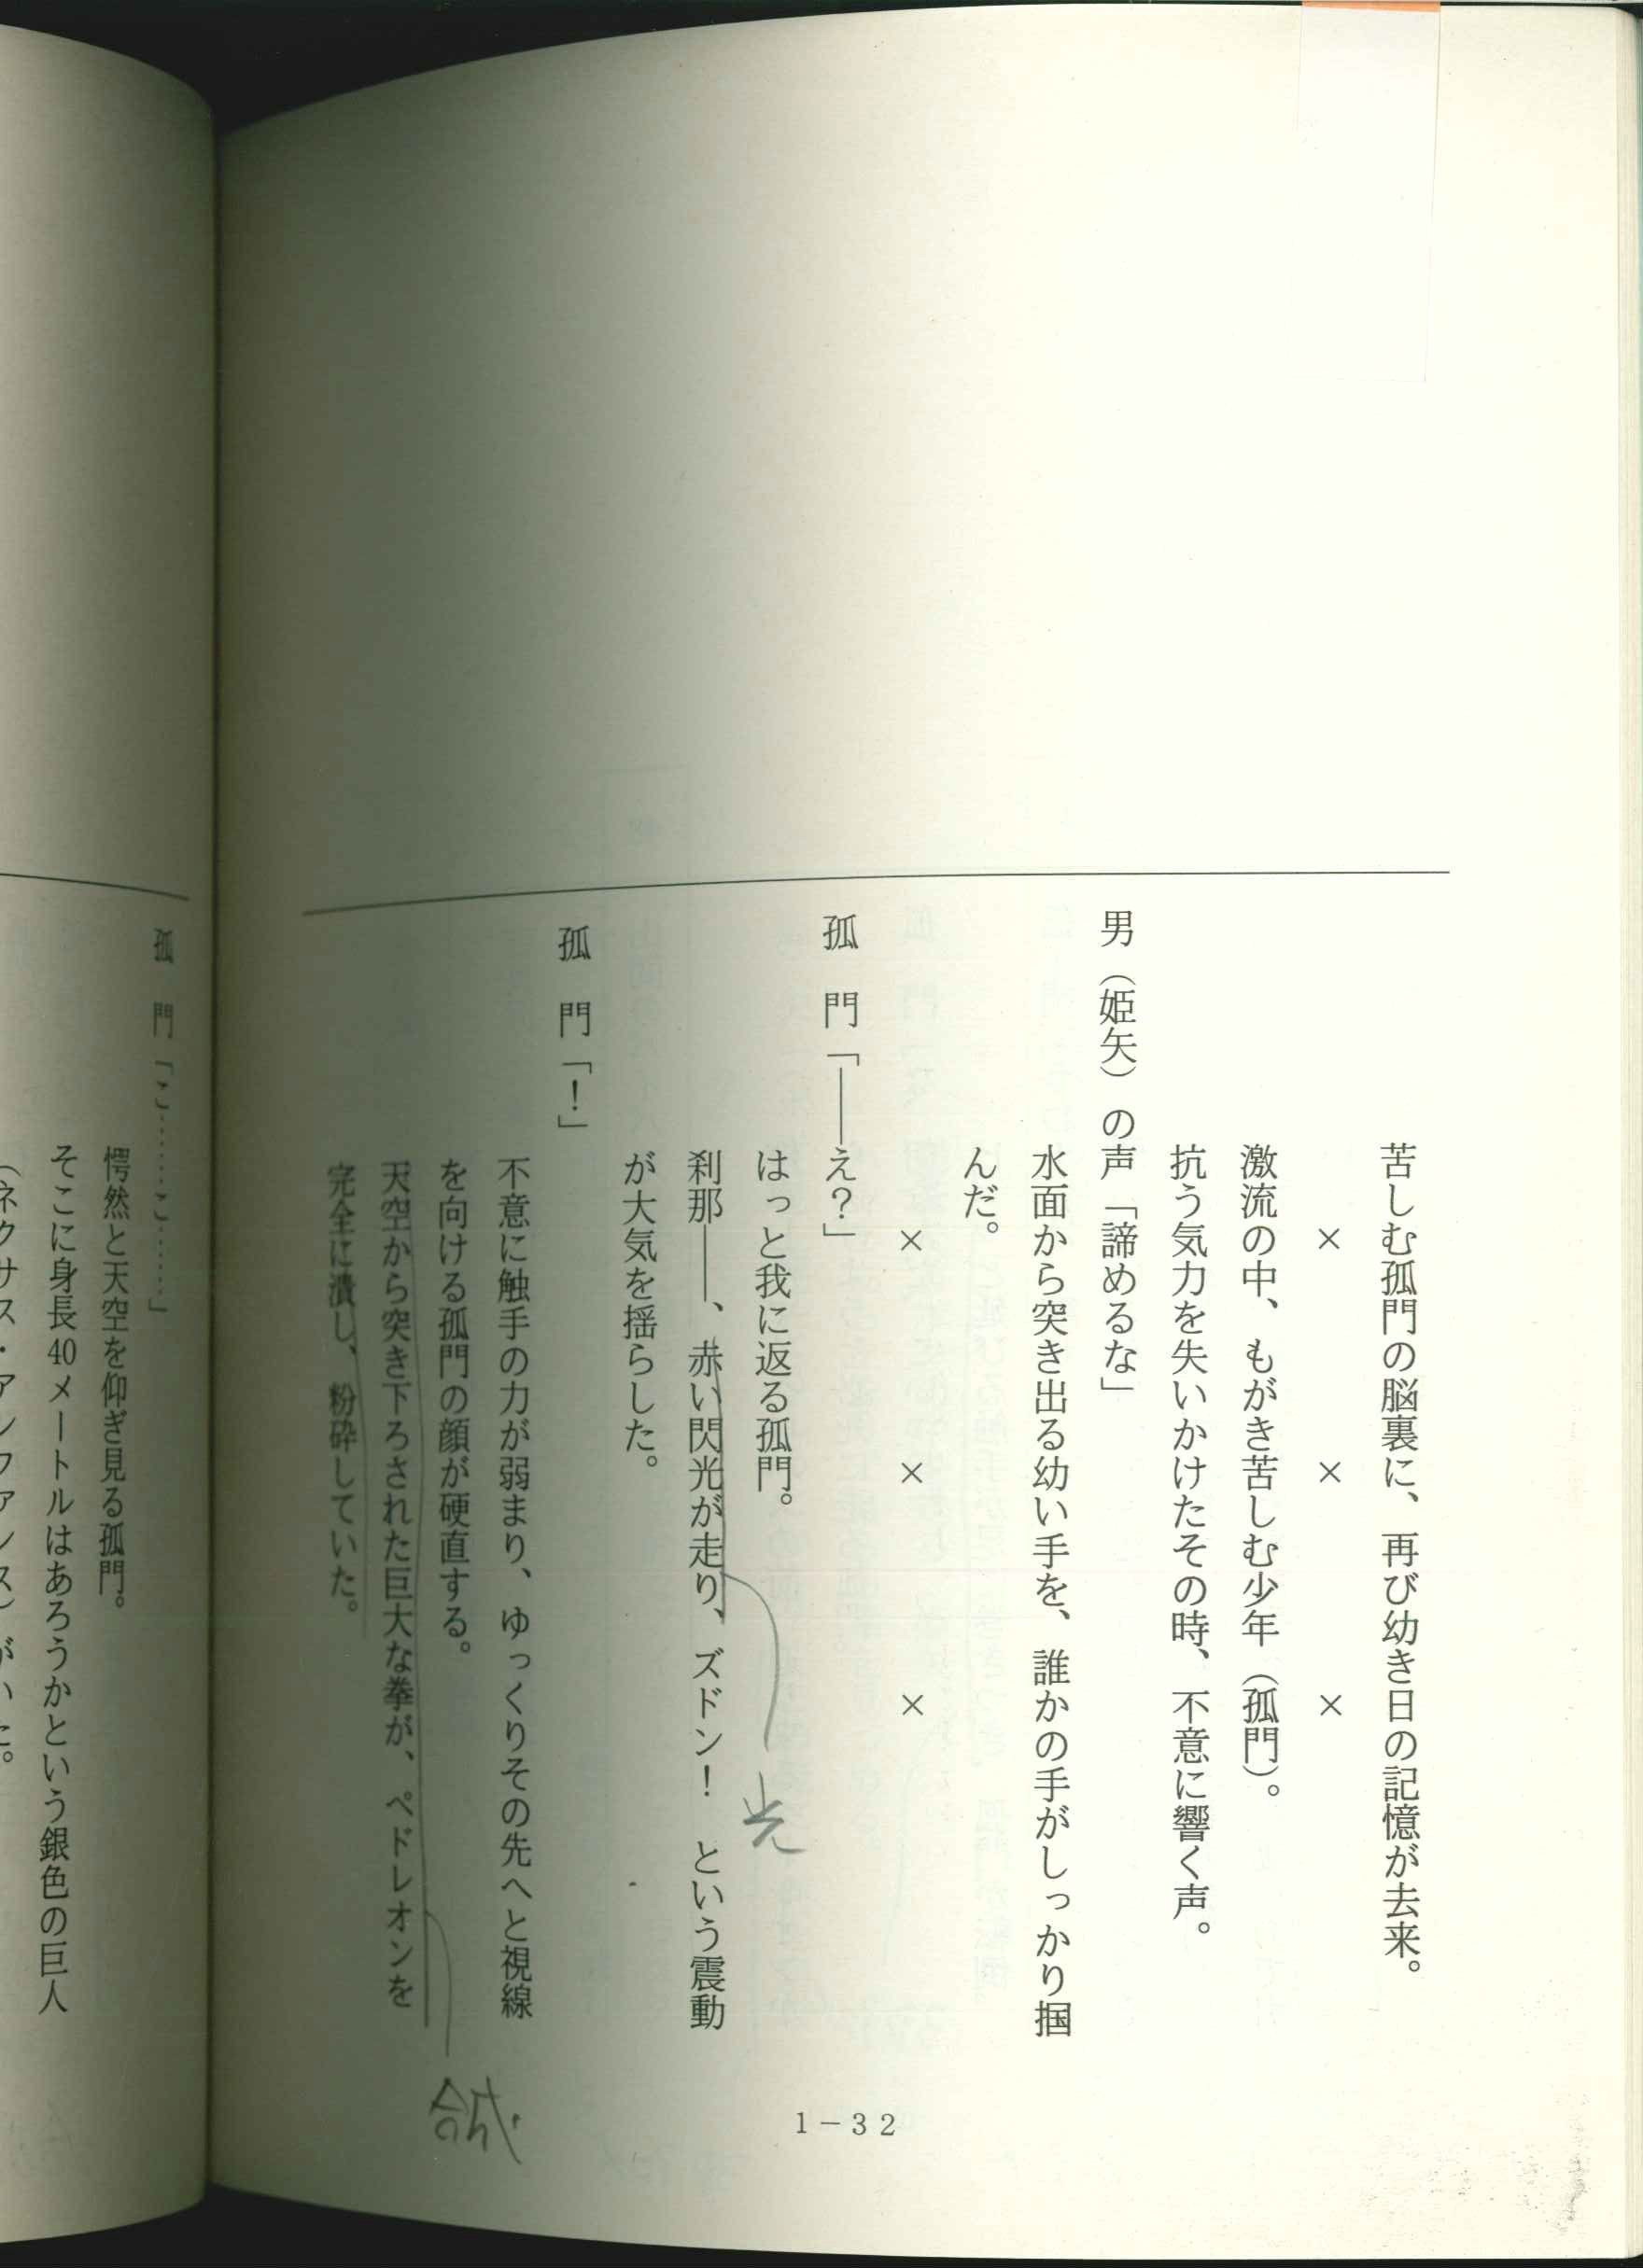 苦しむ孤門の脳裏に、再び幼き日の記憶が去来。
×　×　×
激流の中、もがき苦しむ少年（孤門）。
抗う気力を失いかけたその時、不意に響く声。
男（姫矢）の声「諦めるな」
水面から突き出る幼い手を、誰かの手がしっかり掴
んだ。
×　×　×
孤　門「――え？」
はっと我に返る孤門。
刹那――、赤い閃光が走り、ズドン！　という震動
が大気を揺らした。
光
孤　門「！」
不意に触手の力が弱まり、ゆっくりその先へと視線
を向ける孤門の顔が硬直する。
天空から突き下ろされた巨大な拳が、ペドレオンを
完全に潰し、粉砕していた。
合成
1－32
孤　門「こ……こ……」
愕然と天空を仰ぎ見る孤門。
そこに身長40メートルはあろうかという銀色の巨人
（ネクサス・アンファンス）がいた。